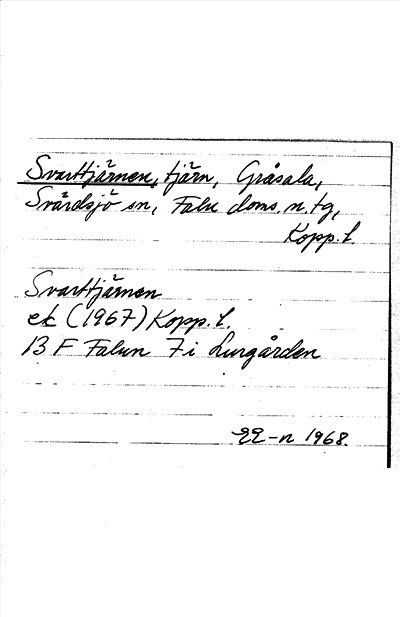 Svarttjärnen, tjärn, Gråsala,
Svärdsjö sn, Falu doms. n. tg,
Kopp. l.
Svarttjärnen
ek (1967) Kopp. l.
13 F Falun 7 i Lurgården
-n 1968.